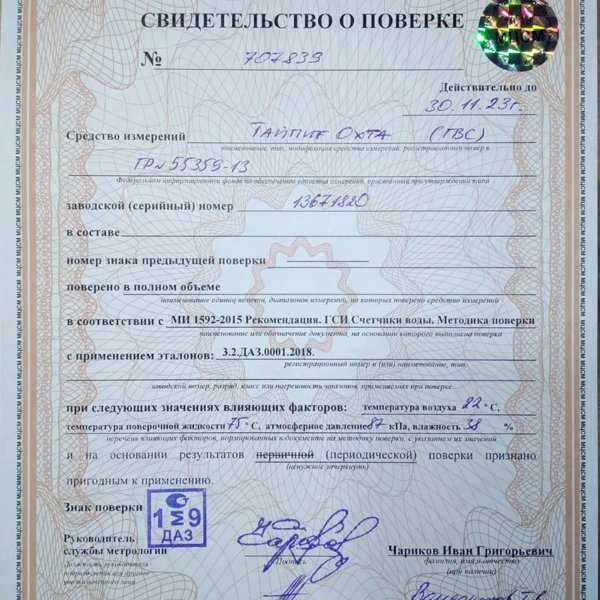 СВИДЕТЕЛЬСТВО О ПОВЕРКЕ
№ 707839
Действительно до
30.11.23г.
Средство измерений Тайпит Охта (ГВС)
наименование, тип, модификация средства измерений, регистрационный номер в
ГР№ 55359-13
Федеральном информационном фонде по обеспечению единства измерений, присвоенный при утверждении типа
заводской (серийный) номер 13671820
в составе
номер знака предыдущей поверки
поверено в полном объеме
наименование единиц величин, диапазонов измерений, на которых поверено средство измерений
в соответствии с МИ 1592-2015 Рекомендация. ГСИ Счетчики воды. Методика поверки
наименование или обозначение документа, на основании которого выполнена поверка
с применением эталонов: 3.2.ДАЗ.0001.2018.
регистрационный номер и (или) наименование, тип,
заводской номер, разряд, класс или погрешность эталонов, применяемых при поверке
при следующих значениях влияющих факторов: температура воздуха 22 °С,
температура поверочной жидкости 75 °С, атмосферное давление 87 кПа, влажность 38 %
перечень влияющих факторов, нормированных в документе на методику поверки, с указанием их значений
и на основании результатов первичной (периодической) поверки признано
(ненужное зачеркнуть)
пригодным к применению.
Знак поверки
1 9
ДАЗ
Руководитель
службы метрологии
Чариков Иван Григорьевич
Подпись
фамилия, имя и отчество
(при наличии)